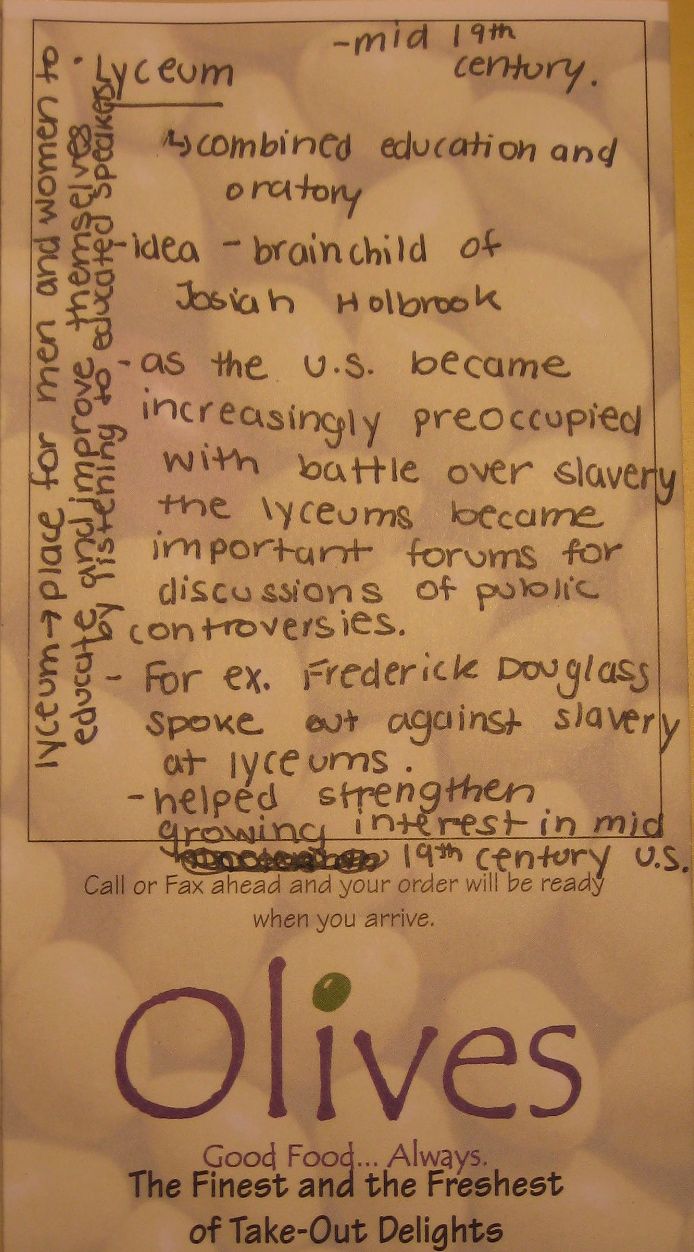 Lyceum
-mid 19th
century.
↳ combined education and
oratory
-idea - brainchild of
Josiah Holbrook
-as the U.S. became
increasingly preoccupied
with battle over slavery
the lyceums became
important forums for
discussions of public
controversies.
- For ex. Frederick Douglass
spoke out against slavery
at lyceums.
-helped strengthen
growing interest in mid
19th century U.S.
lyceum→place for men and women to
educate and improve themselves
by listening to educated speakers
Call or Fax ahead and your order will be ready
when you arrive.
Olives
Good Food... Always.
The Finest and the Freshest
of Take-Out Delights